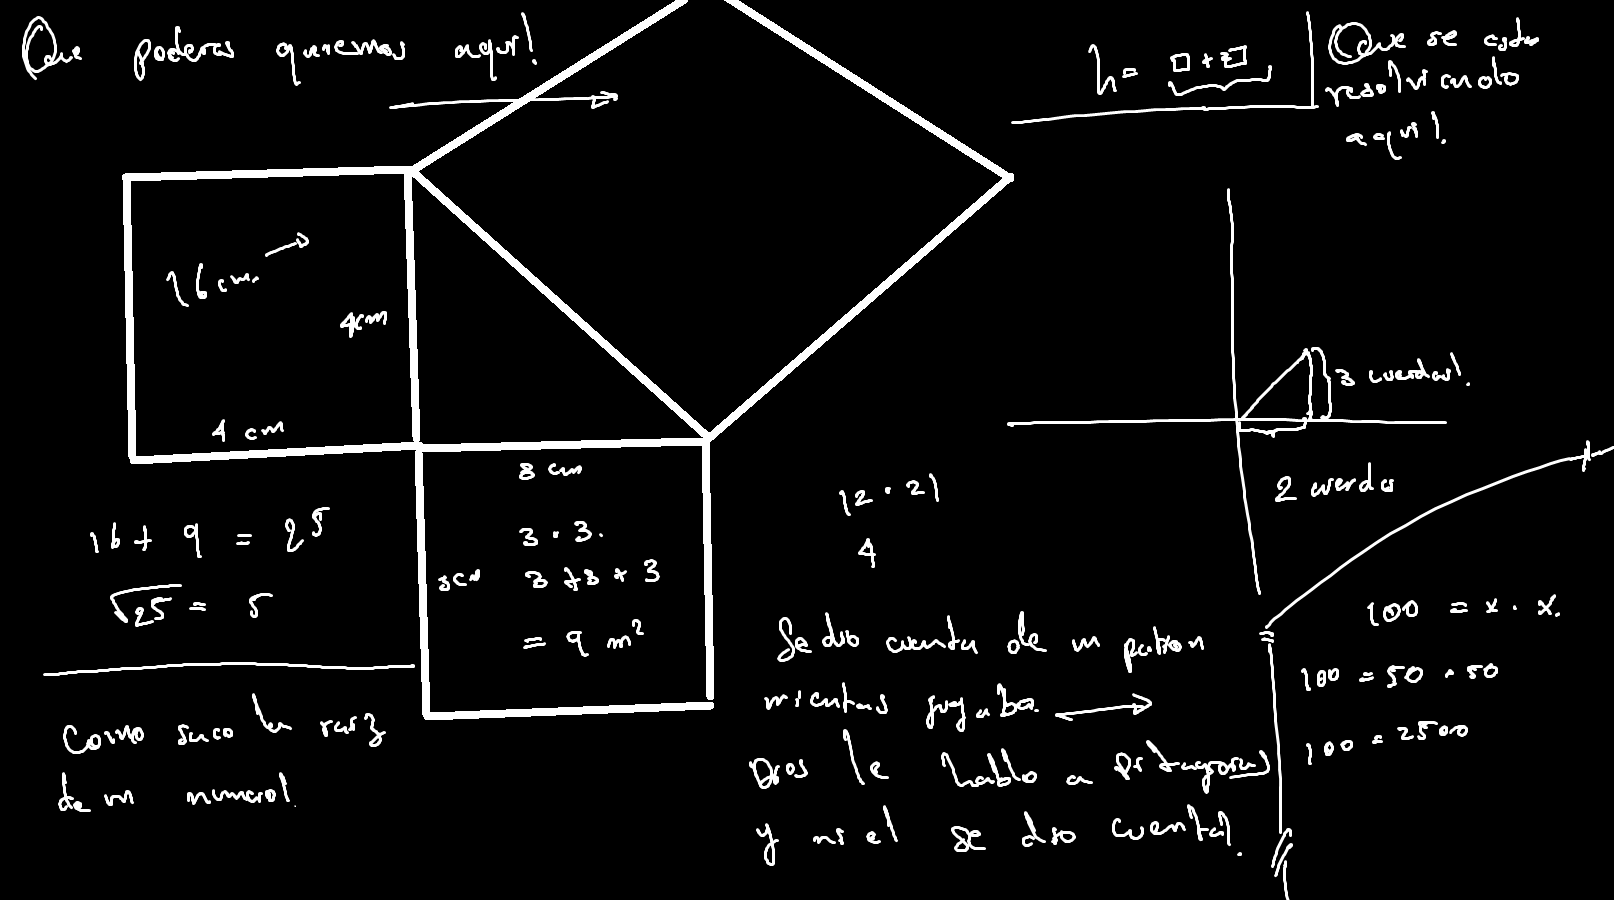 Que poderes queremos aqui!
h= □+□
Que se esta
resolviendo
aqui!
16cm.
4cm
4 cm
3 cm
3 cm
3 · 3.
3 + 3 + 3
= 9 m²
16 + 9 = 25
√25 = 5
Como saco la raiz
de un numero!
3 cuerdas!
2 cuerda
(2 · 2)
4
Se dio cuenta de un patron
mientras jugaba.
Dios le hablo a Pitagoras
y ni el se dio cuenta!.
100 = x · x.
100 = 50 · 50
100 = 2500